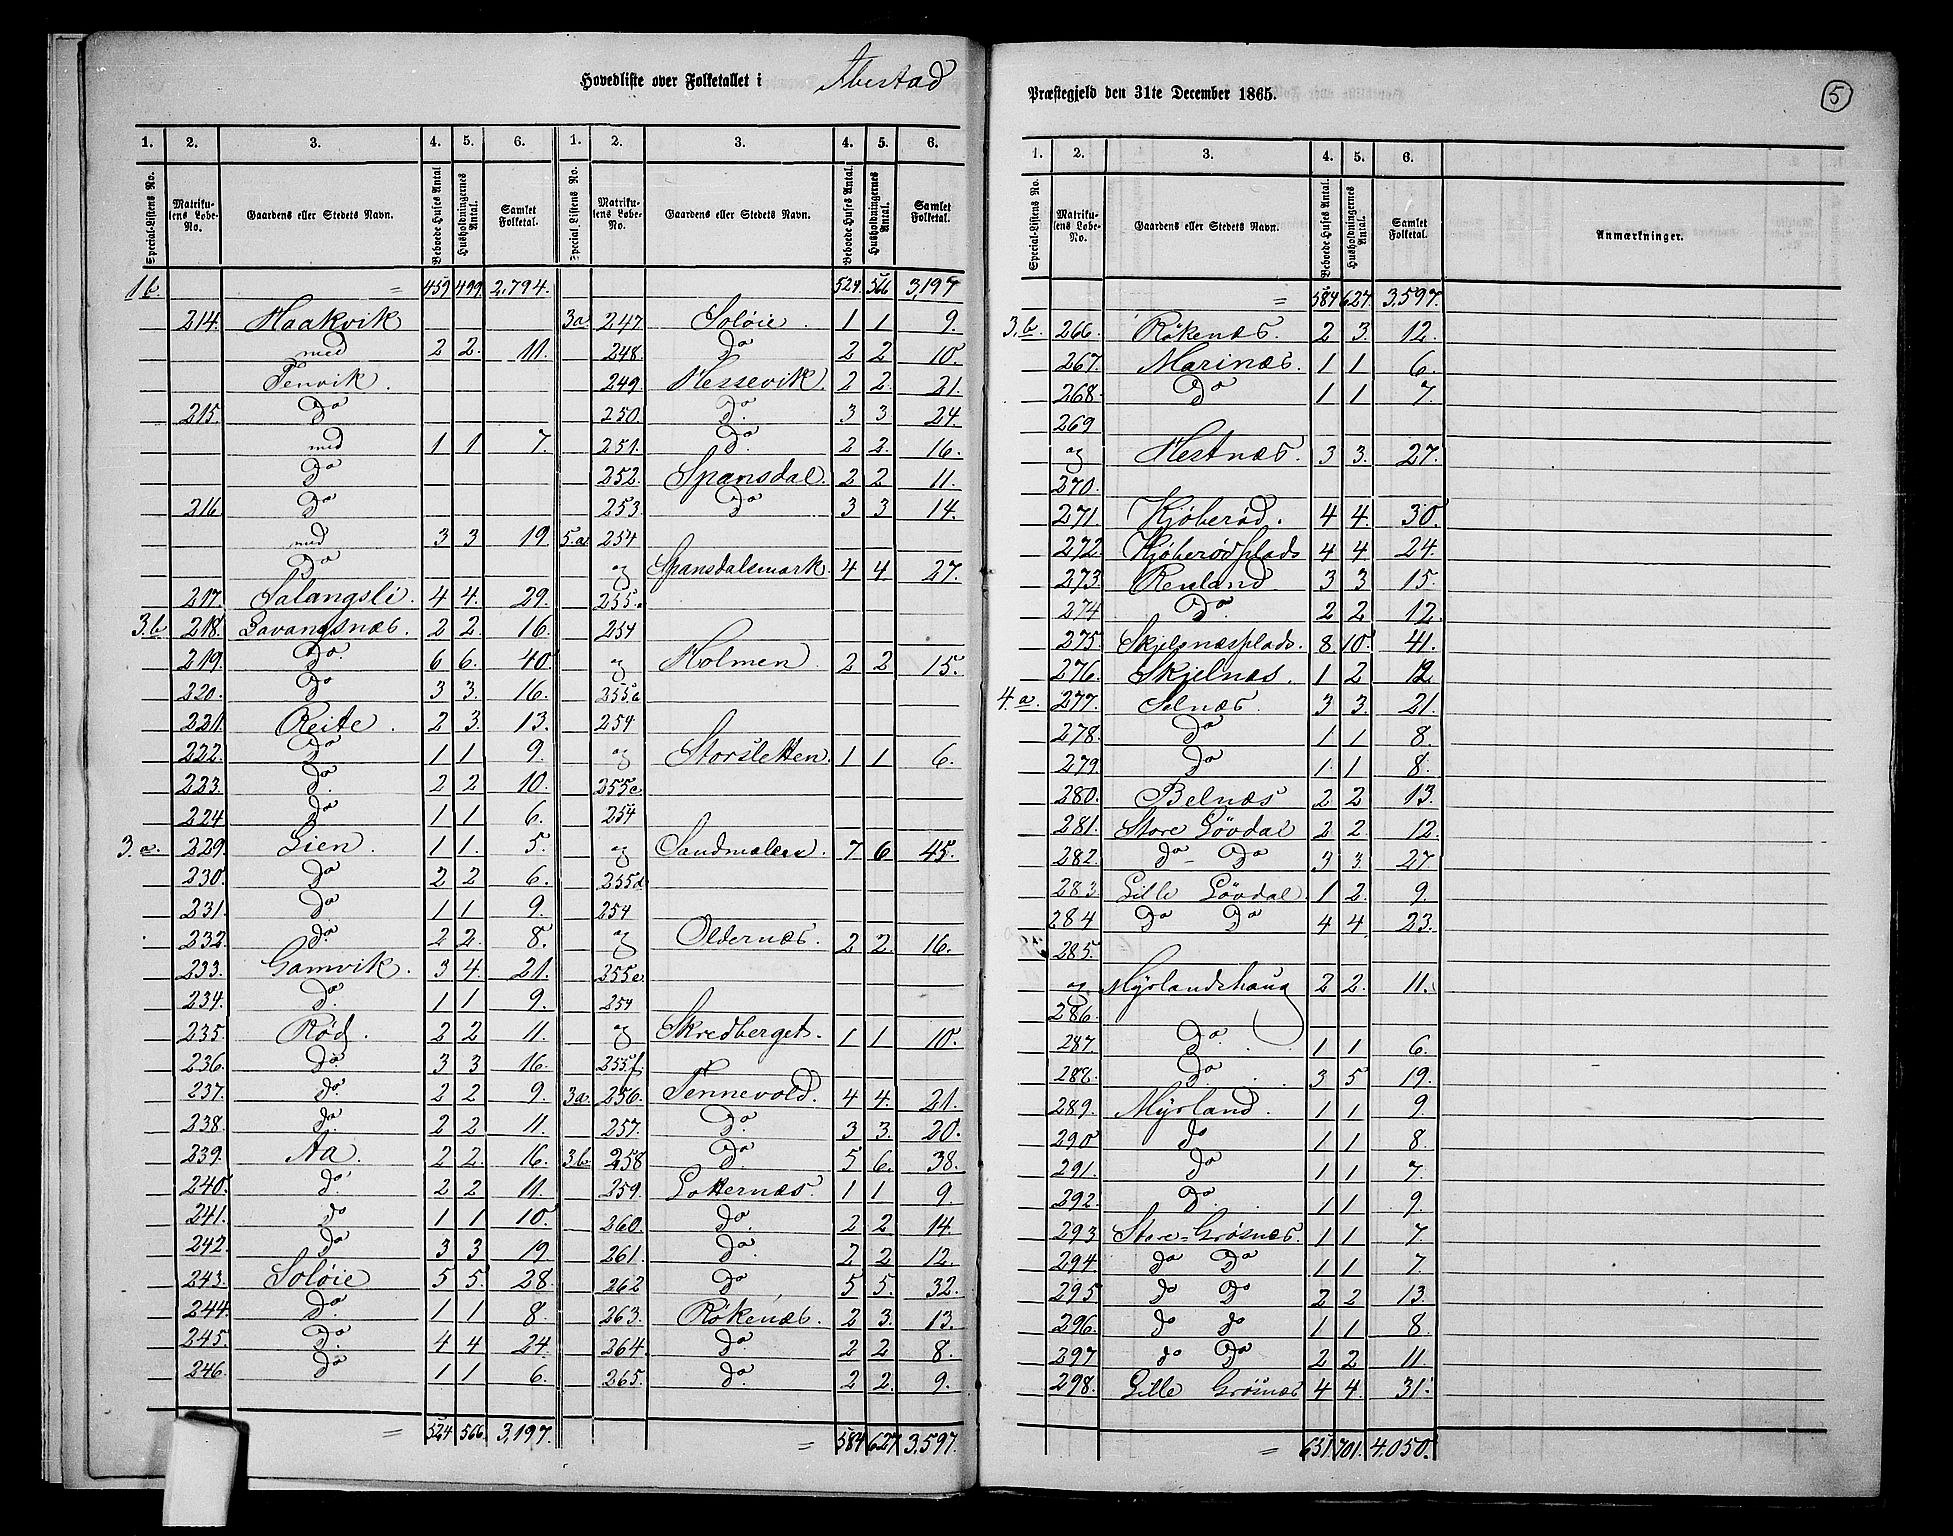 Hovedliste over Folketallet i Ibestad
1. 2. 3. 4. 5. 6. 1. 2. 3. 4. 5. 6.
Special-Listens No. Matrikulens Løbe-No. Gaardens eller Stedets Navn. Beboede Huses Antal Husholdningernes Antal. Samlet Folketal. Special-Listens No. Matrikulens Løbe-No. Gaardens eller Stedets Navn. Beboede Huses Antal. Husholdningernes Antal. Samlet Folketal.
1b. = 459 499 2,794.
214. Haakvik
med 2 2. 11.
Tenvik.
215. Do
med 1 1 7.
Do
216 Do
med 3 3 19
Do
217. Salangsli. 4 4. 29.
3.b 218. Lavangsnæs. 2 2. 16.
219. Do. 6 6. 40.
220. Do 3 3. 16.
221. Reite. 2 3. 13.
222. Do 1 1 9.
223. Do. 2 2 10.
224 Do 1 1 6.
3.a. 229. Lien. 1 1. 5.
230. Do 2 2 6.
231. Do 1 1 9.
232. Do. 2 2. 8.
233. Gamvik. 3 4. 21.
234. Do. 1 1 9.
235. Rød. 2 2 11.
236. Do. 3 3 16.
237. do. 2 2 9.
238. do. 2 2 11.
239. Aa. 2 2. 16.
240. do. 2 2 11.
241. do 1 1 10.
242. do 3 3 19
243. Soløie 5 5. 28.
244. Do. 1 1 8.
245. Do. 4 4 24.
246. Do 1 1 6.
= 524 566. 3,197.
524. 566 3,197
3a 247 Soløie. 1 1 9.
248. Do 2 2 10.
249 Hessevik. 2 2. 21.
250. Do. 3 3 24.
251. Do. 2 2. 16.
252. Spansdal. 2 2 11.
253. Do 3 3 14.
5.a 254
og Spansdalsmark. 4 4. 27.
255.
254
og Holmen. 2 2 15.
255
254
og Storsletten. 1 1 6.
255c.
254
og Sandmælen. 7 6 45.
255d
254
og Oldernæs. 2 2. 16.
255e
254
og Skredberget. 1 1 10.
255f.
3a. 256. Tennevold. 4 4. 21.
257. Do. 3 3. 20.
3b. 258 Do. 5 6. 38.
259. Lotternæs. 1 1 9.
260. Do. 2 2. 14.
261. Do. 2 2 12.
262 Do 5 5. 32.
263. Røkenæs. 2 3. 13.
264. Do. 2 2 8.
265. Do. 2 2. 9.
= 584 627 3,597.
Præstegjeld den 31te December 1865.
5
1. 2. 3. 4. 5. 6.
Special-Listens No. Matrikulens Løbe-No. Gaardens eller Stedets Navn. Beboede Huses Antal. Husholdningernes Antal. Samlet Folketal. Anmærkninger.
= 584 627. 3,597.
3.b. 266. Røkenæs. 2 3. 12.
267. Marinæs. 1 1 6.
268. Do 1 1 7.
269
og Hestnæs. 3 3. 27.
270.
271. Kjøberød. 4 4. 30.
272. Kjøberødplads 4 4 24.
273. Renland 3 3 15.
274 Do 2 2 12.
275. Skjelnæsplads. 8 10. 41.
276. Skjelnæs. 1 2 12
4.a. 277. Selnæs. 3 3. 21.
278. Do 1 1 8.
279. Do 1 1 8.
280. Belnæs 2 2 13.
281. Store Løvdal 2 2. 12.
282. do - Do 3 3. 27
283. Lille Løvdal. 1 2. 9.
284 Do Do 4 4. 23.
285.
og Myrlandshaug 2 2. 11.
286.
287. Do. 1 1 6.
288. Do. 3 5 19.
289. Myrland. 1 1 9.
290 do 1 1 8.
291. do 1 1 7.
292. Do. 1 1 9.
293 Store-Grøsnæs. 1 1 7
294. do Do 1 1 7.
295 do Do 2 2 13.
296. do do 1 1 8.
297 do Do 2 2 11.
298. Lille Grøsnæs 4 4. 31.
= 651. 701. 4.050.